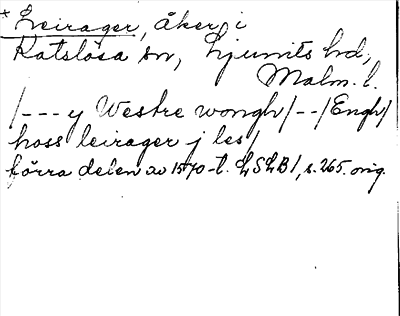 * Leirager, åker i
Katslösa sn, Ljunits hd,
Malm. l.
/--- y Westre wongh/--/Engh/
hoss leirager j les/
förra delen av 1570-t. LSLB1, s. 265. orig.